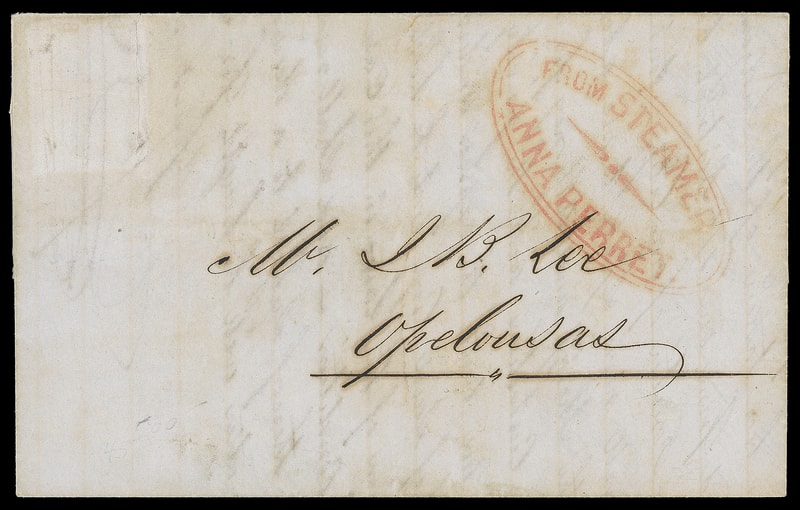 FROM STEAMER
ANNA PERRET.
Mr. J B. Lee
Opelousas